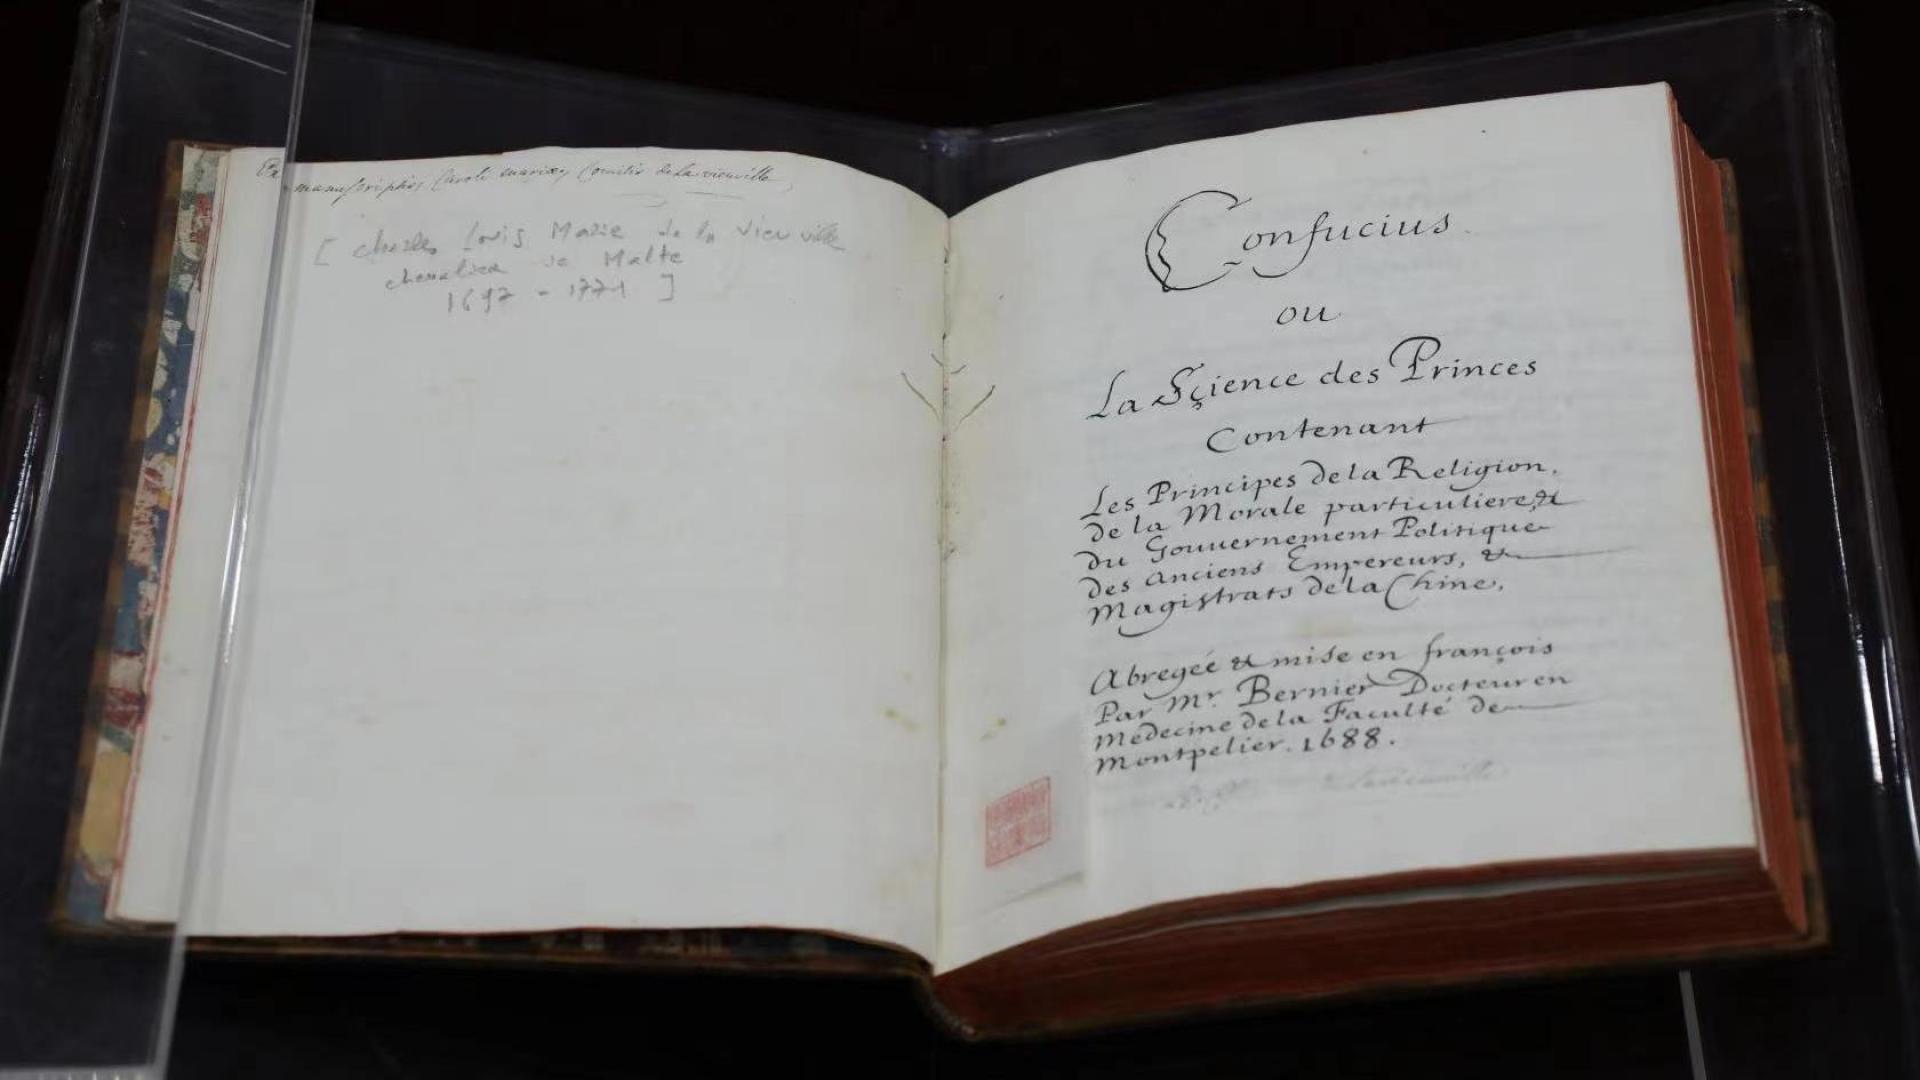 Ex manuscriptis Caroli mariæ Comitis de la vieuville
[ Charles Louis Marie de la Vieuville
chevalier de Malte
1697 - 1771 ]
Confucius
ou
La Sçience des Princes
Contenant
Les Principes de la Religion,
de la Morale particuliere, &
du Gouuernement Politique
des anciens Empereurs, &
Magistrats de la Chine,
Abregée & mise en françois
Par Mr. Bernier Docteur en
Medecine de la Faculté de
Montpelier. 1688.